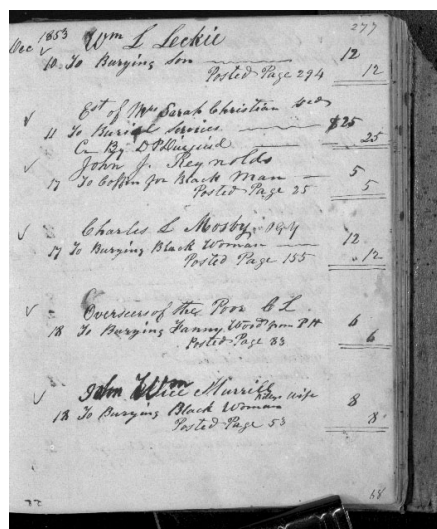 277
Dec 1853 Wm L Leckie
10 To Burying Son 12
Posted Page 294 12
Est of Mrs Sarah Christian
11 To Burial Services $25
Cr By D P 25
John J. Reynolds
17 To Coffin for Black Man 5
Posted Page 25 5
Charles L Mosby
17 To Burying Black Woman 12
Posted Page 155 12
Overseers of the Poor C L
18 To Burying Fanny Wood from P H 6
Posted Page 83 6
Murrill wife
18 To Burying Black Woman 8
Posted Page 53 8
68